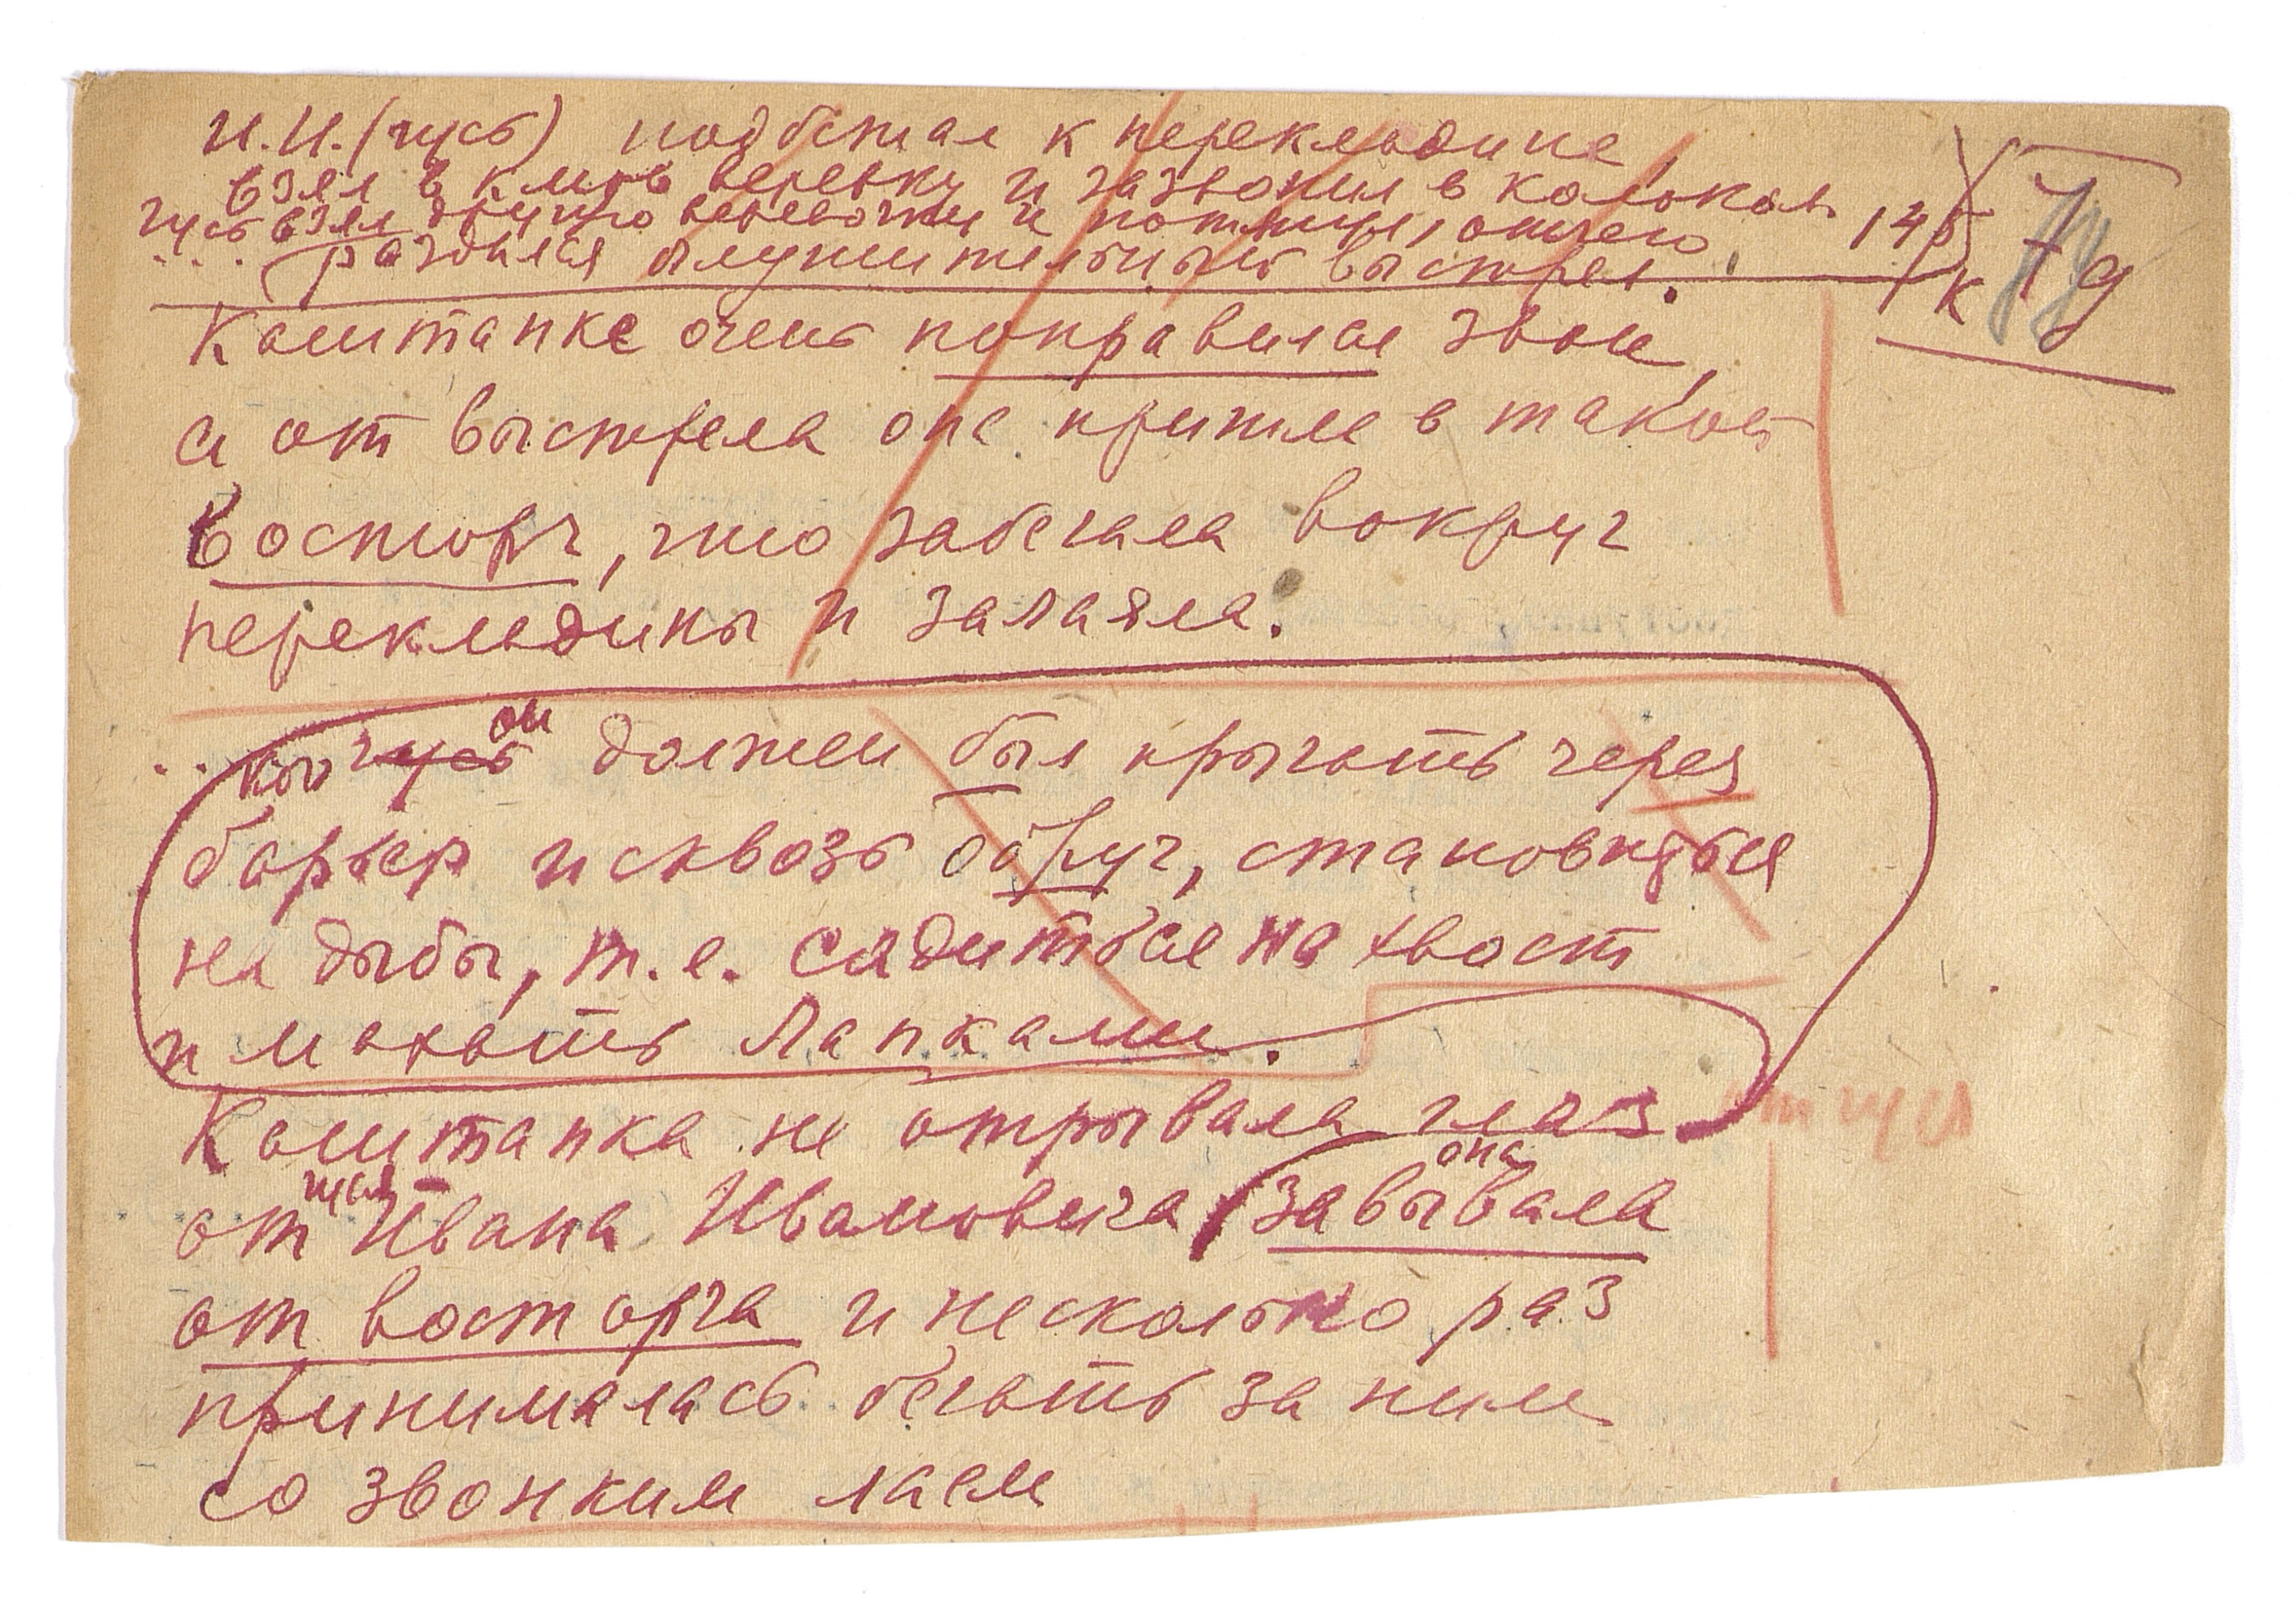 И.И. (гусь) подбежал к перекладине,
взял в клюв веревку и зазвонил в колокол.
гусь взял другую веревочку и потянул, отчего
... раздался оглушительный выстрел.
Каштанке очень понравился звон,
а от выстрела она пришла в такой
восторг, что забегала вокруг
перекладины и залаяла.
он
... гусь должен был прыгать через
барьер и сквозь обруч, становиться
на дыбы, т.е. садиться на хвост
и махать лапками.
Каштанка не отрывала глаз
от гуся
она
гуся
от Ивана Ивановича завывала
от восторга и несколько раз
принималась бегать за ним
со звонким лаем